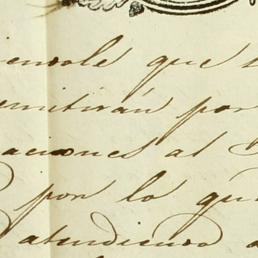 iendole que
emitirán por
aciones al
por lo qu
atendiendo a